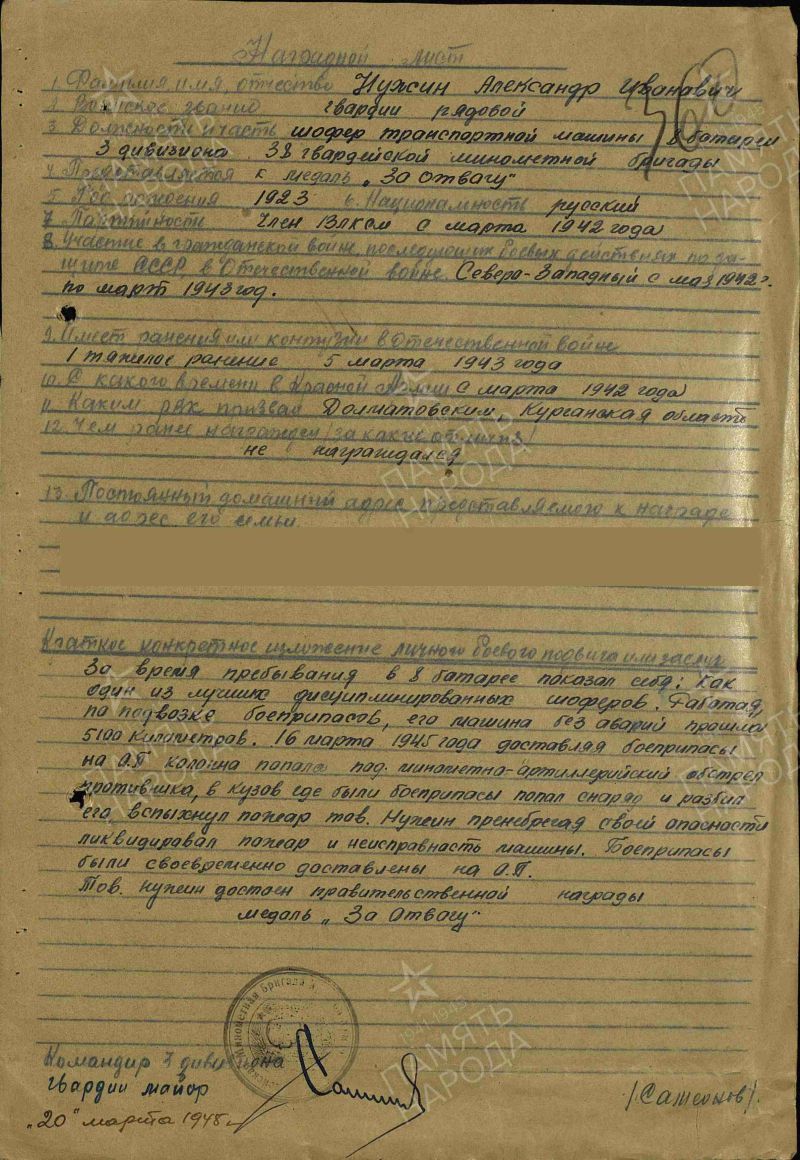 Наградной лист
1. Фамилия, имя, отчество Нужин Александр Иванович
2. Воинское звание гвардии рядовой
3. Должность и часть шофер транспортной машины 8 батареи
3 дивизиона 38 гвардейской минометной бригады
4. Представляется к медаль „За Отвагу"
5. Год рождения 1923 6. Национальность русский
7. Партийность член ВЛКСМ с марта 1942 года
8. Участие в гражданской войне, последующих боевых действиях по за-
щите СССР, в Отечественной войне Северо-Западный с мая 1942 г.
по март 1943 год.
9. Имеет ранения или контузии в Отечественной войне
1 тяжелое ранение 5 марта 1943 года
10. С какого времени в Красной Армии с марта 1942 года
11. Каким РВК призван Долматовским, Курганская область
12. Чем ранее награжден /за какие отличия/
не награждался
13. Постоянный домашний адрес представляемого к награде
и адрес его семьи.
Краткое конкретное изложение личного боевого подвига или заслуг
За время пребывания в 8 батарее показал себя: как
один из лучших дисциплинированных шоферов. Работая,
по подвозке боеприпасов, его машина без аварий прошла
5100 километров. 16 марта 1945 года доставляя боеприпасы
на О.П колонна попала под минометно-артиллерийский обстрел
противника, в кузов где были боеприпасы попал снаряд и разбил
его, вспыхнул пожар тов. Нужин пренебрегая своей опасности
ликвидировал пожар и неисправность машины. Боеприпасы
были своевременно доставлены на О.П.
Тов. Нужин достоен правительственной награды
медаль „За Отвагу"
Командир 3 дивизиона
гвардии майор
/Сажонов/.
„20" марта 1945 г.
ПАМЯТЬ НАРОДА
1941-1945